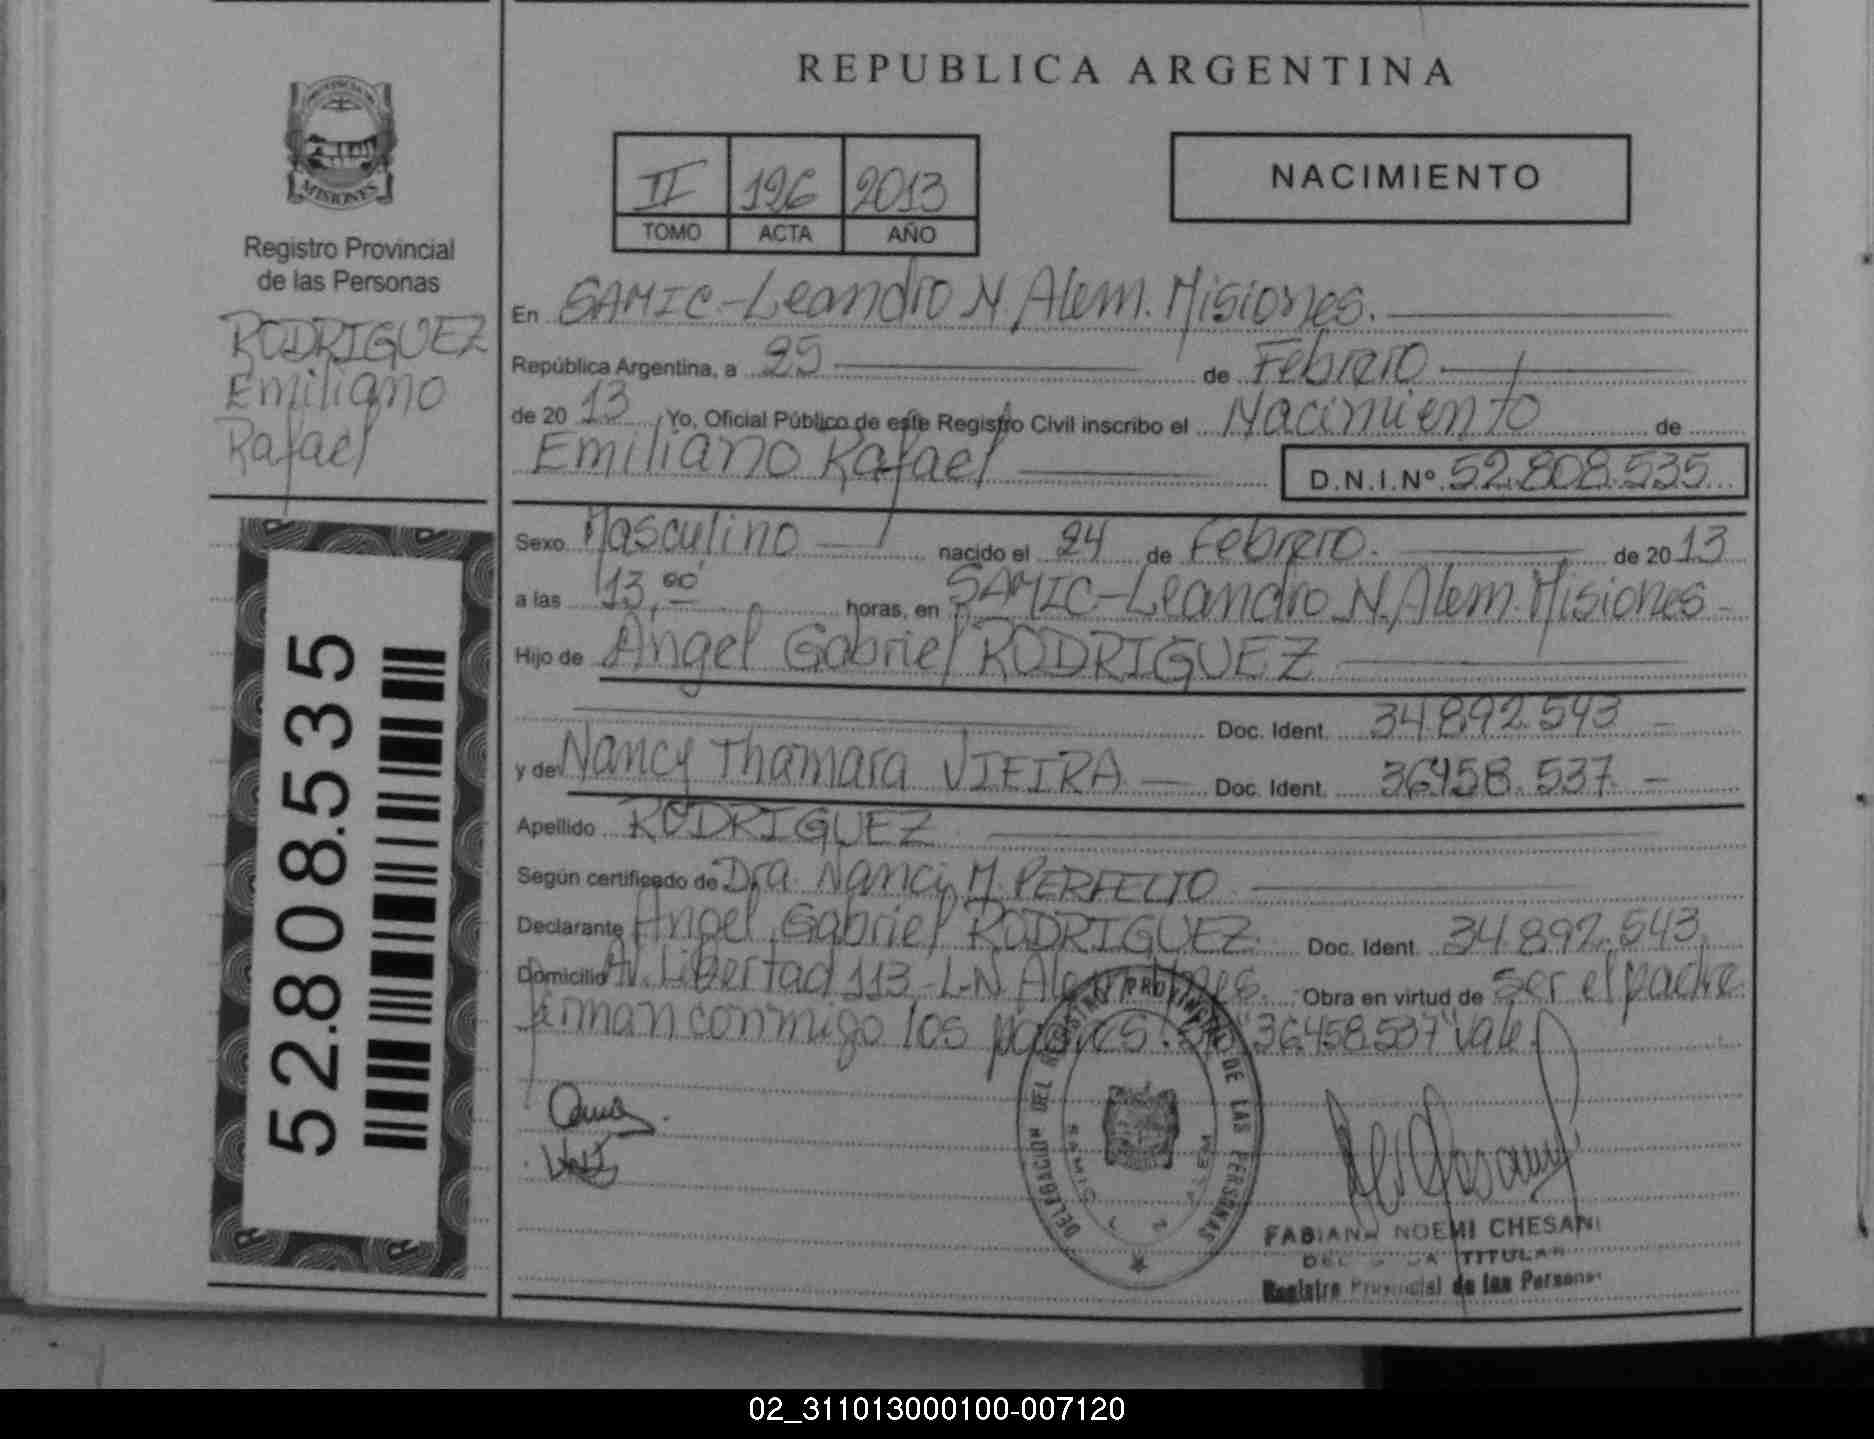 REPUBLICA ARGENTINA
PROVINCIA DE
MISIONES
Registro Provincial
de las Personas
RODRIGUEZ
Emiliano
Rafael
52.808.535
II 126 2013
TOMO ACTA AÑO
NACIMIENTO
En SAMIC-Leandro N. Alem. Misiones.
República Argentina, a 25 de Febrero
de 2013, Yo, Oficial Público de este Registro Civil inscribo el Nacimiento de
Emiliano Rafael D.N.I.Nº 52.808.535
Sexo Masculino nacido el 24 de Febrero. de 2013
a las 13,00 horas, en SAMIC-Leandro N. Alem. Misiones
Hijo de Angel Gabriel RODRIGUEZ
Doc. Ident. 34.892.543
y de Nancy Thamara VIEIRA Doc. Ident. 36458.537.
Apellido RODRIGUEZ
Según certificado de Dra. Nanci M. PERFECTO
Declarante Angel Gabriel RODRIGUEZ Doc. Ident. 34.892.543
Domicilio Av. Libertad 113-L.N. Alem Mnes. Obra en virtud de ser el padre
firman conmigo los padres. "36.458.537" Vale.
DELEGACION DEL REGISTRO PROVINCIAL DE LAS PERSONAS
SAMIC L N ALEM
FABIANA NOEMI CHESANI
DELEGADA TITULAR
Registro Provincial de las Personas
02_311013000100-007120